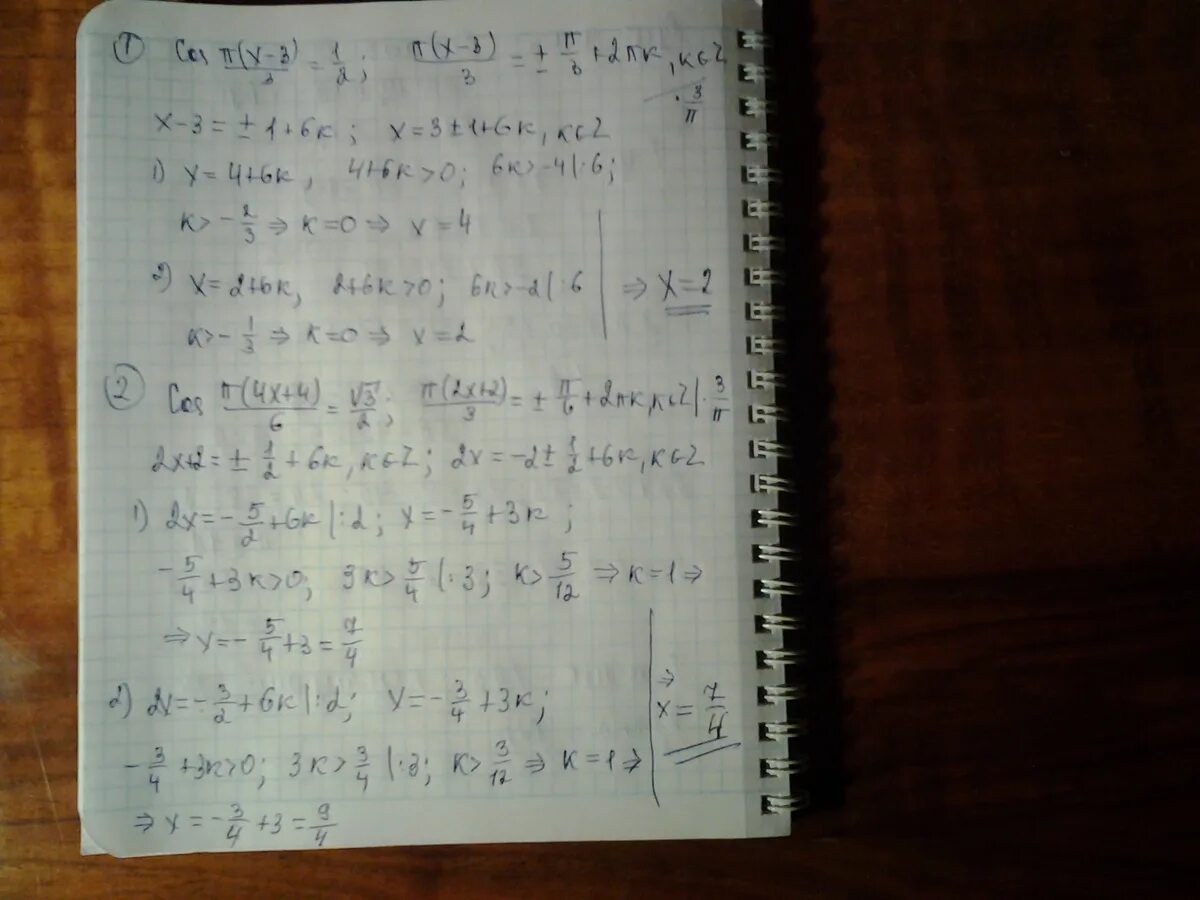 ① Cos π(x-3)/3 = 1/2; π(x-3)/3 = ± π/3 + 2πк, к∈Z | · 3/π
x-3 = ± 1 + 6к; x = 3 ± 1 + 6к, к∈Z
1) x = 4+6к, 4+6к > 0; 6к > -4 |:6;
к > - 2/3 ⇒ к=0 ⇒ x = 4
2) x = 2+6к, 2+6к > 0; 6к > -2 |:6
к > - 1/3 ⇒ к=0 ⇒ x = 2
⇒ x = 2
② Cos π(4x+4)/6 = √3/2; π(2x+2)/3 = ± π/6 + 2πк, к∈Z | · 3/π
2x+2 = ± 1/2 + 6к, к∈Z; 2x = -2 ± 1/2 + 6к, к∈Z
1) 2x = - 5/2 + 6к |:2; x = - 5/4 + 3к;
- 5/4 + 3к > 0; 3к > 5/4 |:3; к > 5/12 ⇒ к=1 ⇒
⇒ x = - 5/4 + 3 = 7/4
2) 2x = - 3/2 + 6к |:2; x = - 3/4 + 3к;
- 3/4 + 3к > 0; 3к > 3/4 |:3; к > 3/12 ⇒ к = 1 ⇒
⇒ x = - 3/4 + 3 = 9/4
⇒
x = 7/4